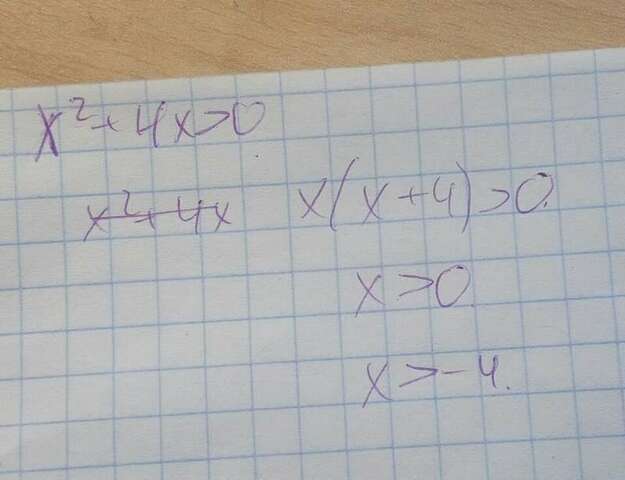 x²+4x>0
x²+4x x(x+4)>0.
x>0
x>-4.